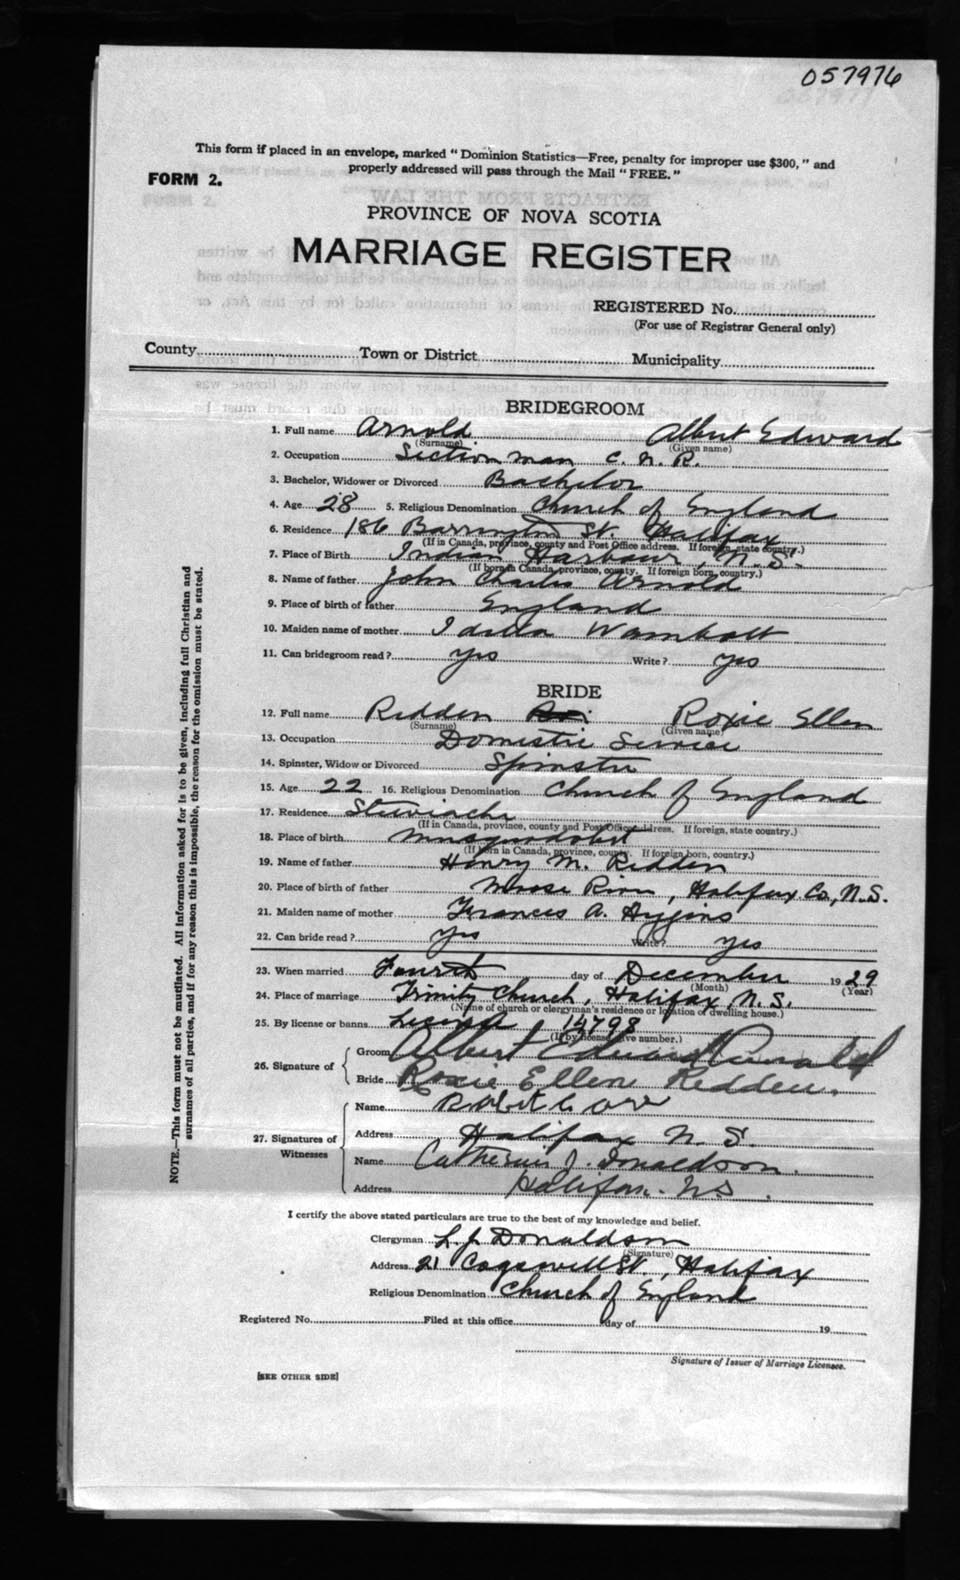 057976
This form if placed in an envelope, marked "Dominion Statistics—Free, penalty for improper use $300," and
properly addressed will pass through the Mail "FREE."
FORM 2.
PROVINCE OF NOVA SCOTIA
MARRIAGE REGISTER
REGISTERED No.
(For use of Registrar General only)
County Town or District Municipality
BRIDEGROOM
1. Full name Arnold Albert Edward
(Surname) (Given name)
2. Occupation Section man C. N. R.
3. Bachelor, Widower or Divorced Bachelor
4. Age 28 5. Religious Denomination Church of England
6. Residence 186 Barrington St. Halifax
(If in Canada, province, county and Post Office address. If foreign, state country.)
7. Place of Birth Indian Harbour, N.S.
(If born in Canada, province, county. If foreign born, country.)
8. Name of father John Charles Arnold
9. Place of birth of father England
10. Maiden name of mother Idella Wambolt
11. Can bridegroom read? yes Write? yes
BRIDE
12. Full name Redden Roxie Ellen
(Surname) (Given name)
13. Occupation Domestic Service
14. Spinster, Widow or Divorced Spinster
15. Age 22 16. Religious Denomination Church of England
17. Residence Stewiacke
(If in Canada, province, county and Post Office address. If foreign, state country.)
18. Place of birth Musquodobit
(If born in Canada, province, county. If foreign born, country.)
19. Name of father Henry M. Redden
20. Place of birth of father Moose River, Halifax Co, N.S.
21. Maiden name of mother Frances A. Higgins
22. Can bride read? yes Write? yes
23. When married Fourth day of December 1929
(Month) (Year)
24. Place of marriage Trinity Church, Halifax, N.S.
(Name of church or clergyman's residence or location of dwelling house.)
25. By license or banns License 14798
(If by license, give number.)
26. Signature of
Groom Albert Edward Arnold
Bride Roxie Ellen Redden.
27. Signatures of Witnesses
Name Robert C Orr
Address Halifax N. S.
Name Catherine J. Donaldson.
Address Halifax. N.S.
I certify the above stated particulars are true to the best of my knowledge and belief.
Clergyman L. J. Donaldson
(Signature)
Address 21 Cogswell St., Halifax
Religious Denomination Church of England
Registered No. Filed at this office day of 19
Signature of Issuer of Marriage Licenses.
[SEE OTHER SIDE]
NOTE.—This form must not be mutilated. All information asked for is to be given, including full Christian and
surnames of all parties, and if for any reason this is impossible, the reason for the omission must be stated.